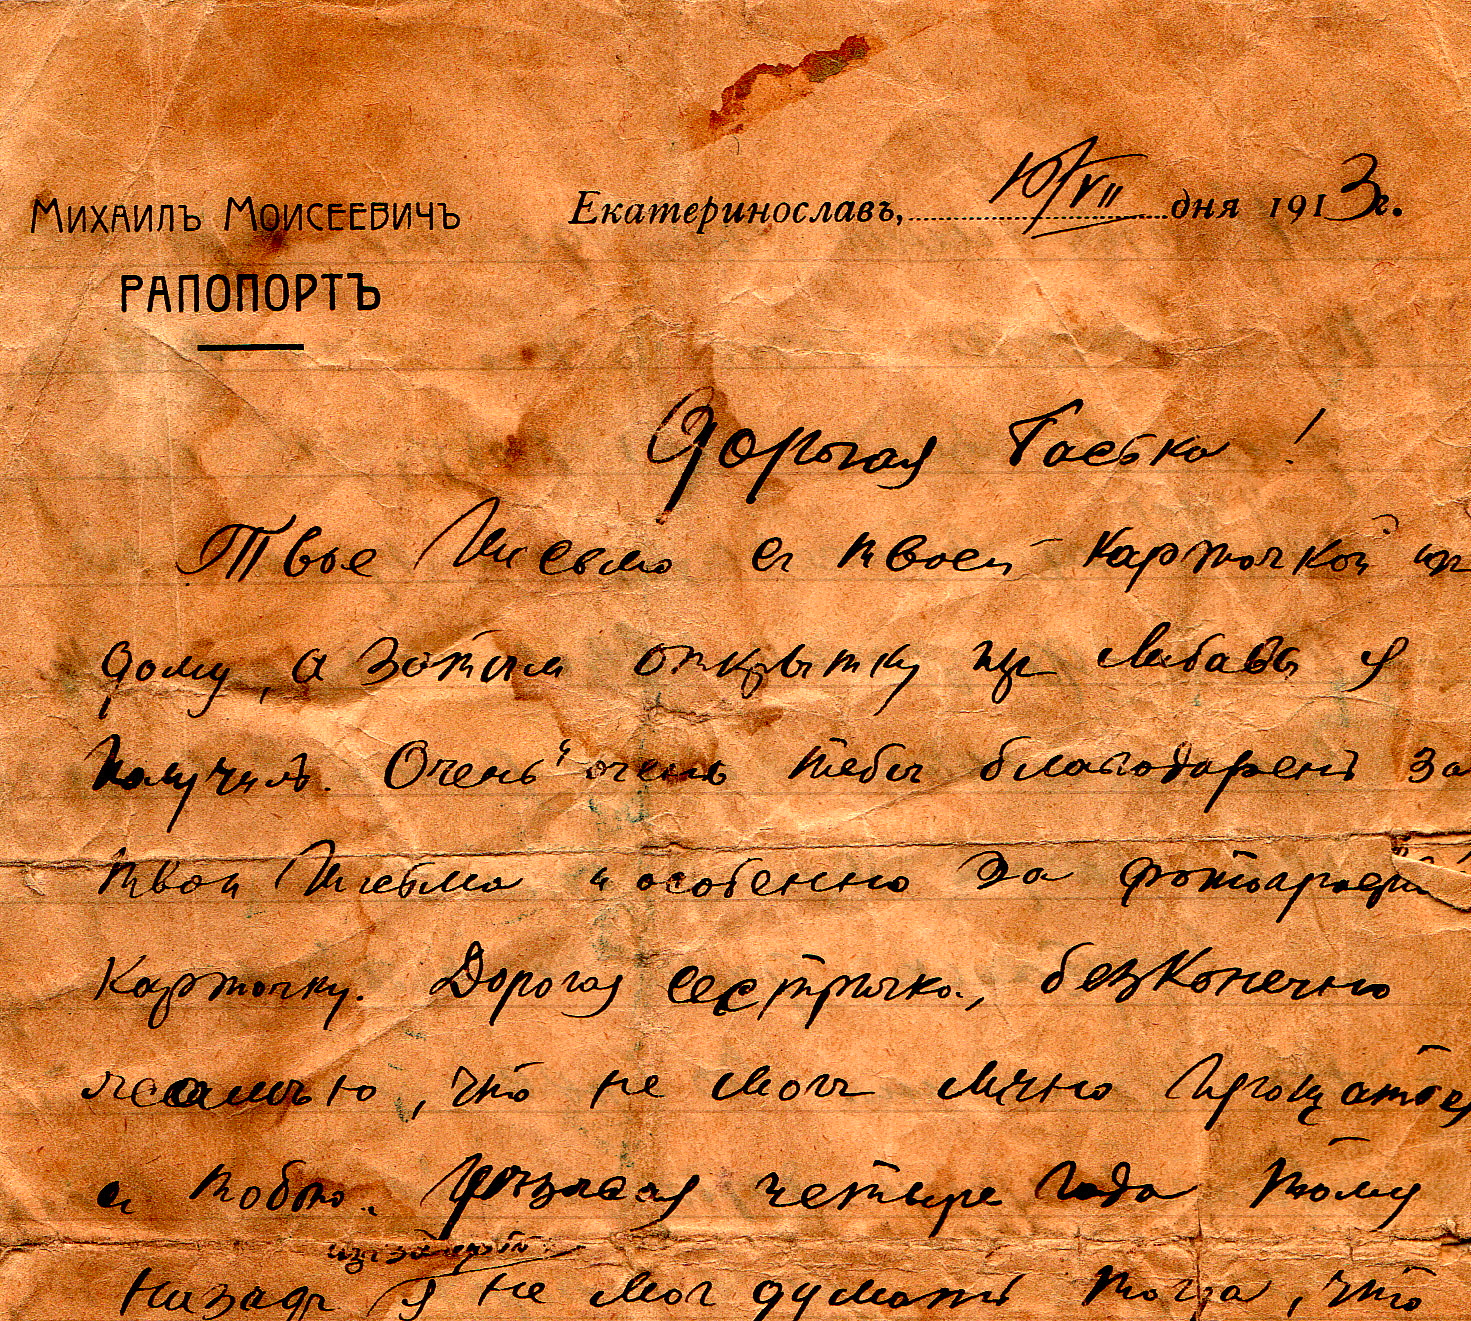 Михаилъ Моисеевичъ
Рапопортъ
Екатеринославъ, 10/VII дня 1913 г.
Дорогая !
Твое письмо съ твоей карточкой из
дому, а затѣм открытку из Либавы я
получилъ. Очень очень тебѣ благодарен за
твои письма и особенно за фотографич
карточку. Дорогая сестричка, безконечно
жалѣю, что не могъ лично прощаться
съ тобою. четыре года тому
назадъ я не мог думать тогда, что